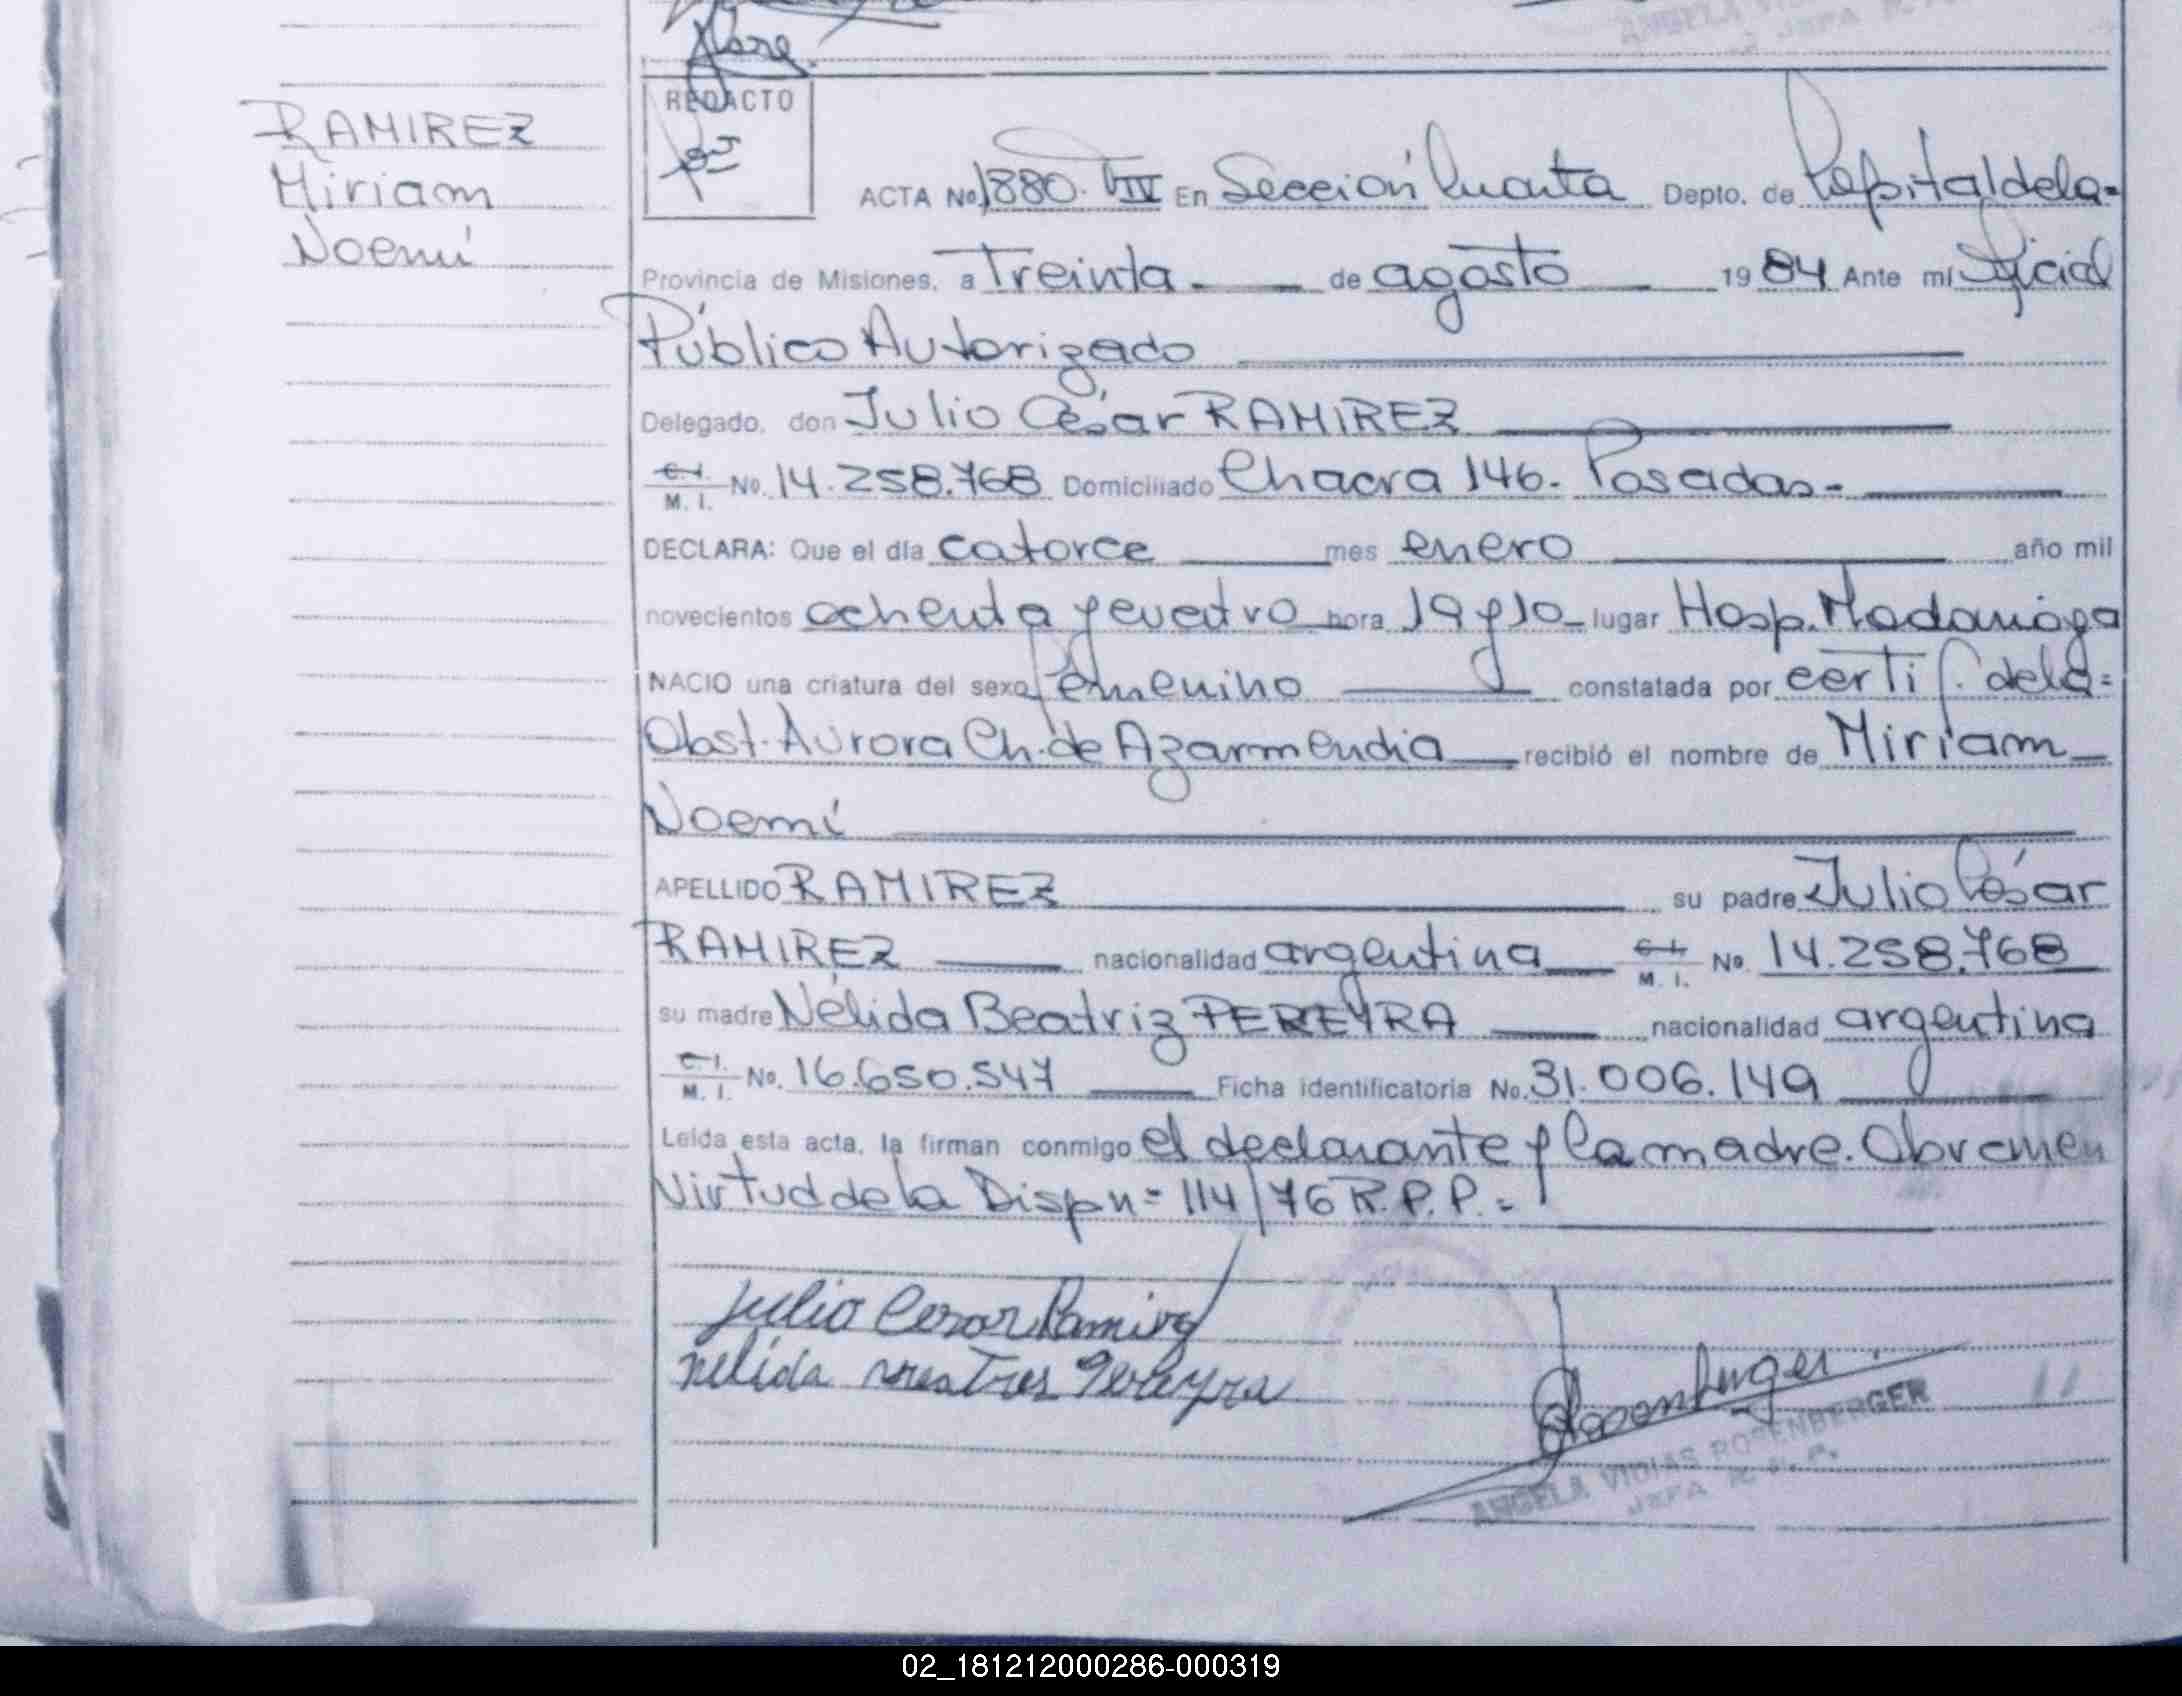 RAMIREZ
Miriam
Noemí
REDACTO
ACTA No 1880. TIV En Sección Cuarta Depto. de Capital de la-
Provincia de Misiones, a Treinta . de agosto 1984 Ante mí Oficial
Público Autorizado
Delegado, don Julio César RAMIREZ
C. I. M. I. No. 14.258.768 Domiciliado Chacra 146. Posadas-
DECLARA: Que el día catorce mes enero año mil
novecientos ochenta y cuatro hora 19 y 10 lugar Hosp. Madariaga
NACIO una criatura del sexo femenino constatada por certif. de la=
Obst. Aurora Ch. de Azarmendia recibió el nombre de Miriam
Noemí
APELLIDO RAMIREZ su padre Julio César
RAMIREZ nacionalidad argentina C. I. M. I. No. 14.258.768
su madre Nélida Beatriz PEREYRA nacionalidad argentina
C. I. M. I. No. 16.650.547 Ficha identificatoria No. 31.006.149
Leída esta acta, la firman conmigo el declarante y la madre. Obr en en
virtud de la Disp n= 114/76 R.P.P.=
Julio Cesar Ramirez
Nelida Pereyra
Rosenberger
ANGELA VIDIAS ROSENBERGER
JEFA R. N. P.
02_181212000286-000319